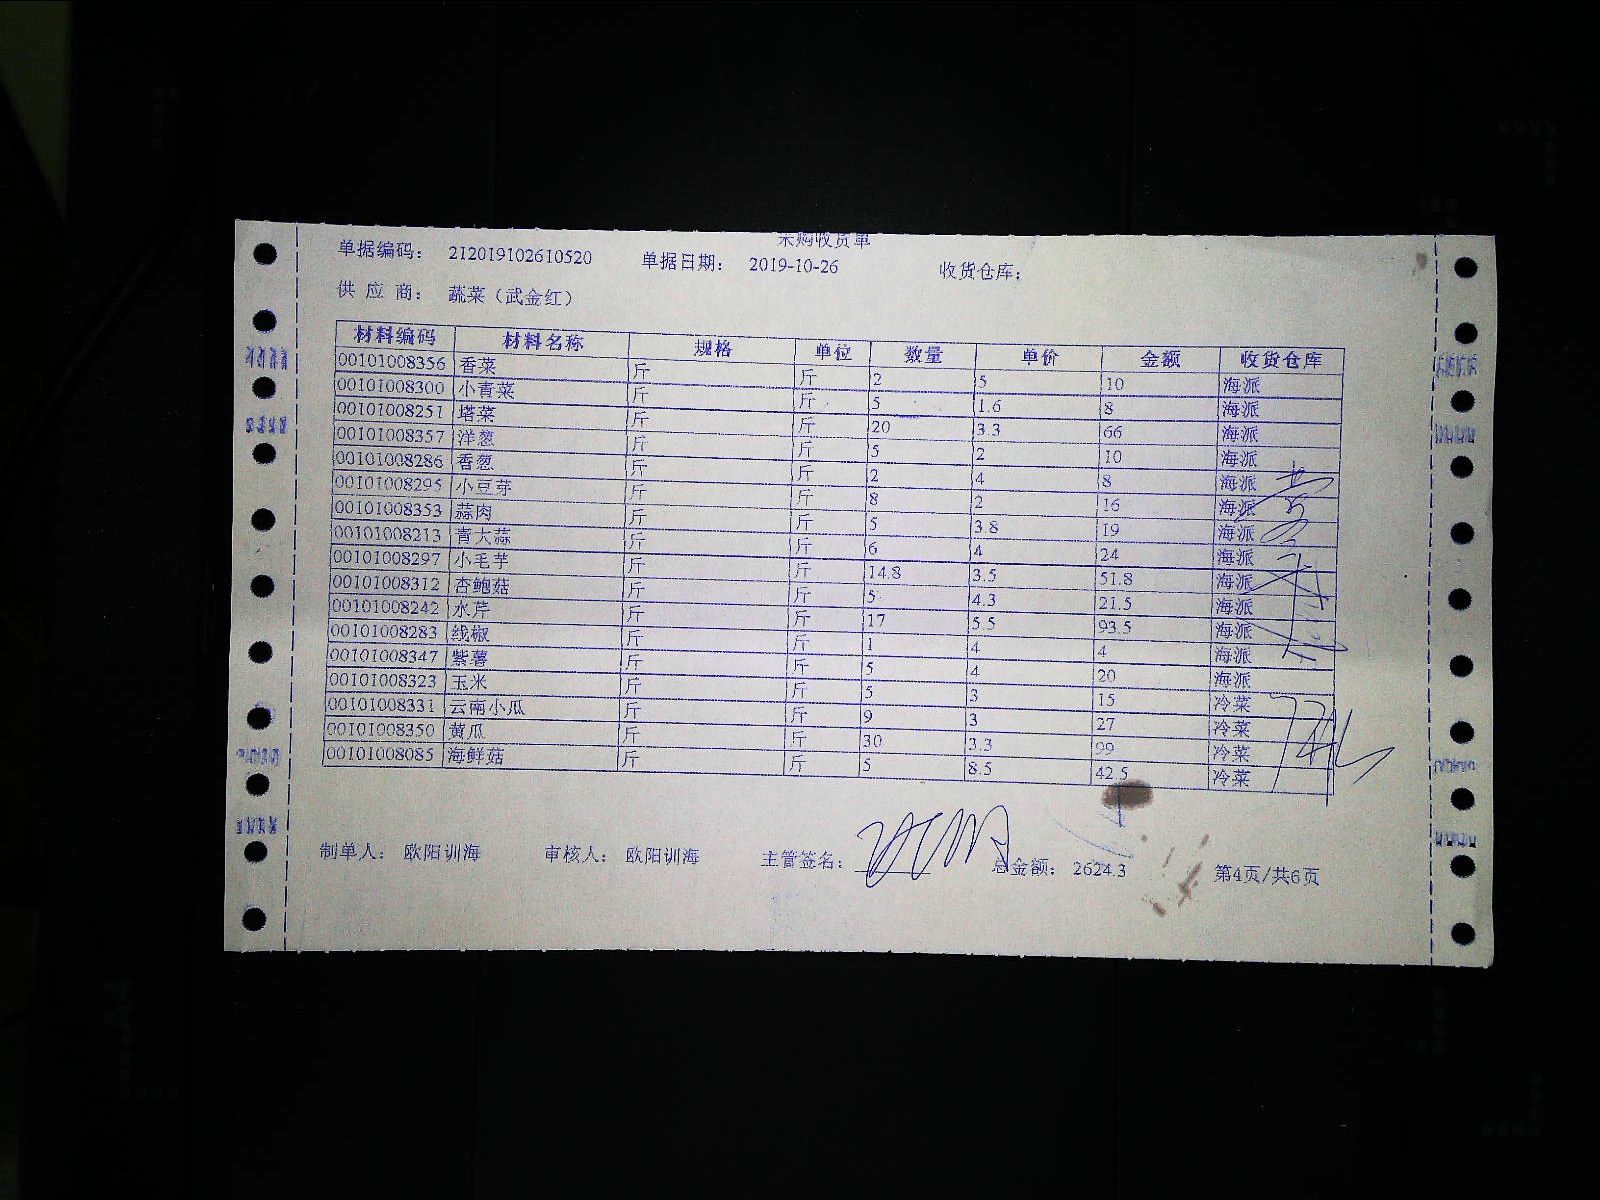 采购收货单
单据编码： 212019102610520 单据日期： 2019-10-26 收货仓库：
供 应 商： 蔬菜（武金红）
材料编码 材料名称 规格 单位 数量 单价 金额 收货仓库
00101008356 香菜 斤 斤 2 5 10 海派
00101008300 小青菜 斤 斤 5 1.6 8 海派
00101008251 塔菜 斤 斤 20 3.3 66 海派
00101008357 洋葱 斤 斤 5 2 10 海派
00101008286 香葱 斤 斤 2 4 8 海派
00101008295 小豆芽 斤 斤 8 2 16 海派
00101008353 蒜肉 斤 斤 5 3.8 19 海派
00101008213 青大蒜 斤 斤 6 4 24 海派
00101008297 小毛芋 斤 斤 14.8 3.5 51.8 海派
00101008312 杏鲍菇 斤 斤 5 4.3 21.5 海派
00101008242 水芹 斤 斤 17 5.5 93.5 海派
00101008283 线椒 斤 斤 1 4 4 海派
00101008347 紫薯 斤 斤 5 4 20 海派
00101008323 玉米 斤 斤 5 3 15 冷菜
00101008331 云南小瓜 斤 斤 9 3 27 冷菜
00101008350 黄瓜 斤 斤 30 3.3 99 冷菜
00101008085 海鲜菇 斤 斤 5 8.5 42.5 冷菜
制单人： 欧阳训海 审核人： 欧阳训海 主管签名： 总金额： 2624.3 第4页/共6页